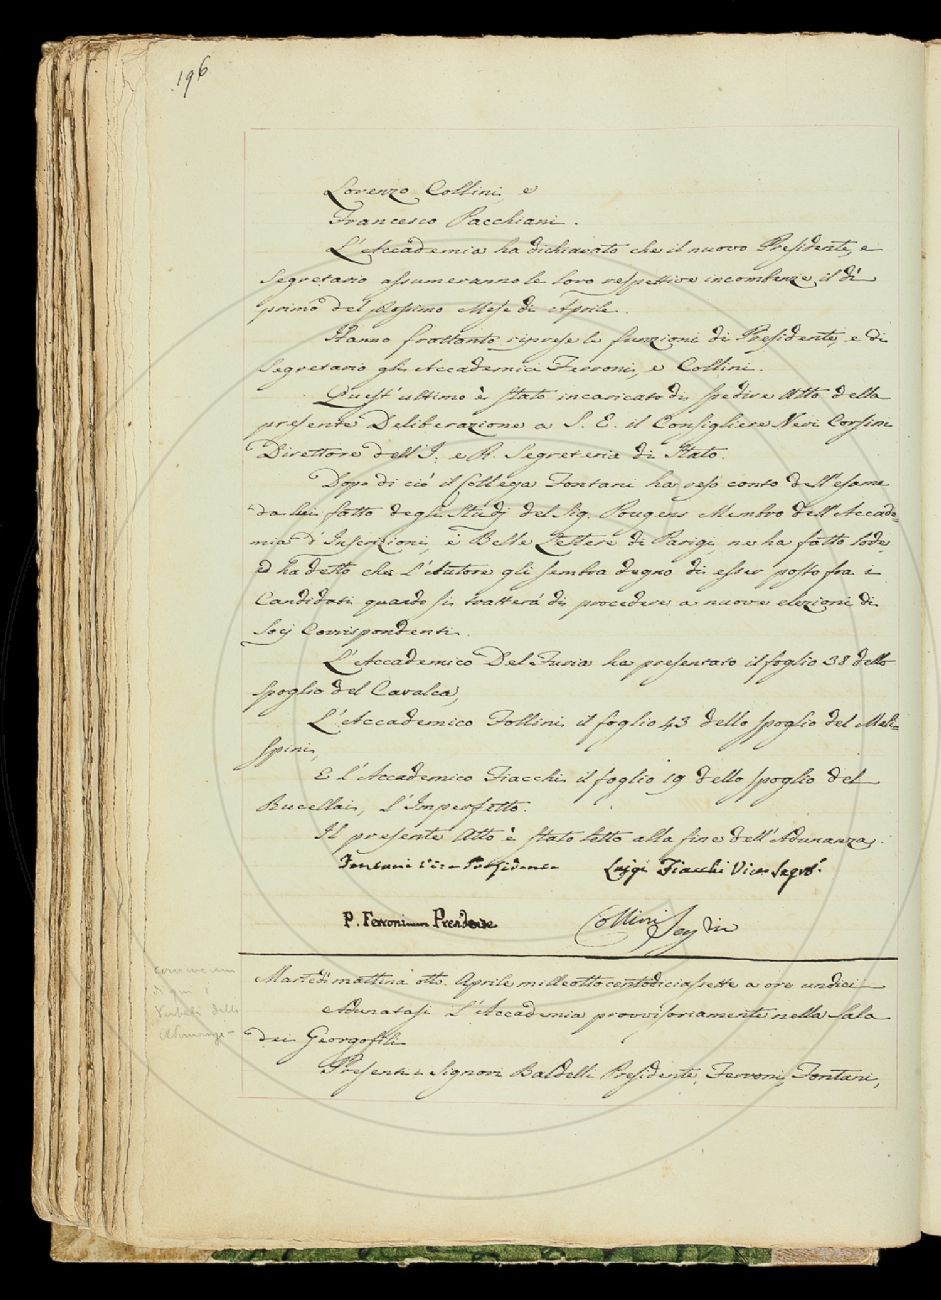 196
Lorenzo Collini, e
Francesco Pacchiani.
L'Accademia ha dichiarato che il nuovo Presidente, e
Segretario assumeranno le loro respettive incombenze il dì
primo del prossimo Mese di Aprile.
Hanno frattanto riprese le funzioni di Presidente, e di
Segretario gli Accademici Ferroni, e Collini.
Quest'ultimo è stato incaricato di spedire Atto della
presente Deliberazione a S. E. il Consigliere Neri Corsini
Direttore dell'I. e R. Segreteria di Stato.
Dopo di ciò il Collega Fontani ha reso conto dell'esame
da lui fatto degli Studj del Sig. Pougens Membro dell'Accade=
mia d'Inscrizioni, e Belle Lettere di Parigi, ne ha fatto lode,
ed ha detto che L'Autore gli sembra degno di esser posto fra i
Candidati quando si tratterà di procedere a nuove elezioni di
Socj Corrispondenti.
L'Accademico Del Furia ha presentato il foglio 38 dello
spoglio del Cavalca,
L'Accademico Follini il foglio 43 dello spoglio del Male=
spini,
E l'Accademico Fiacchi il foglio 19 dello spoglio del
Rucellai, L'Imperfetto.
Il presente Atto è stato letto alla fine dell'Adunanza.
Fontani Vice Presidente Luigi Fiacchi Vice Segret.
P. Ferroni Presidente Collini Seg
Martedì mattina otto Aprile milleottocentodiciassette a ore undici
Adunatasi L'Accademia provvisoriamente nella Sala
dei Georgofili
Presenti i Signori Baldelli Presidente, Ferroni, Fontani,
qui i
Verbali delle
Adunanze